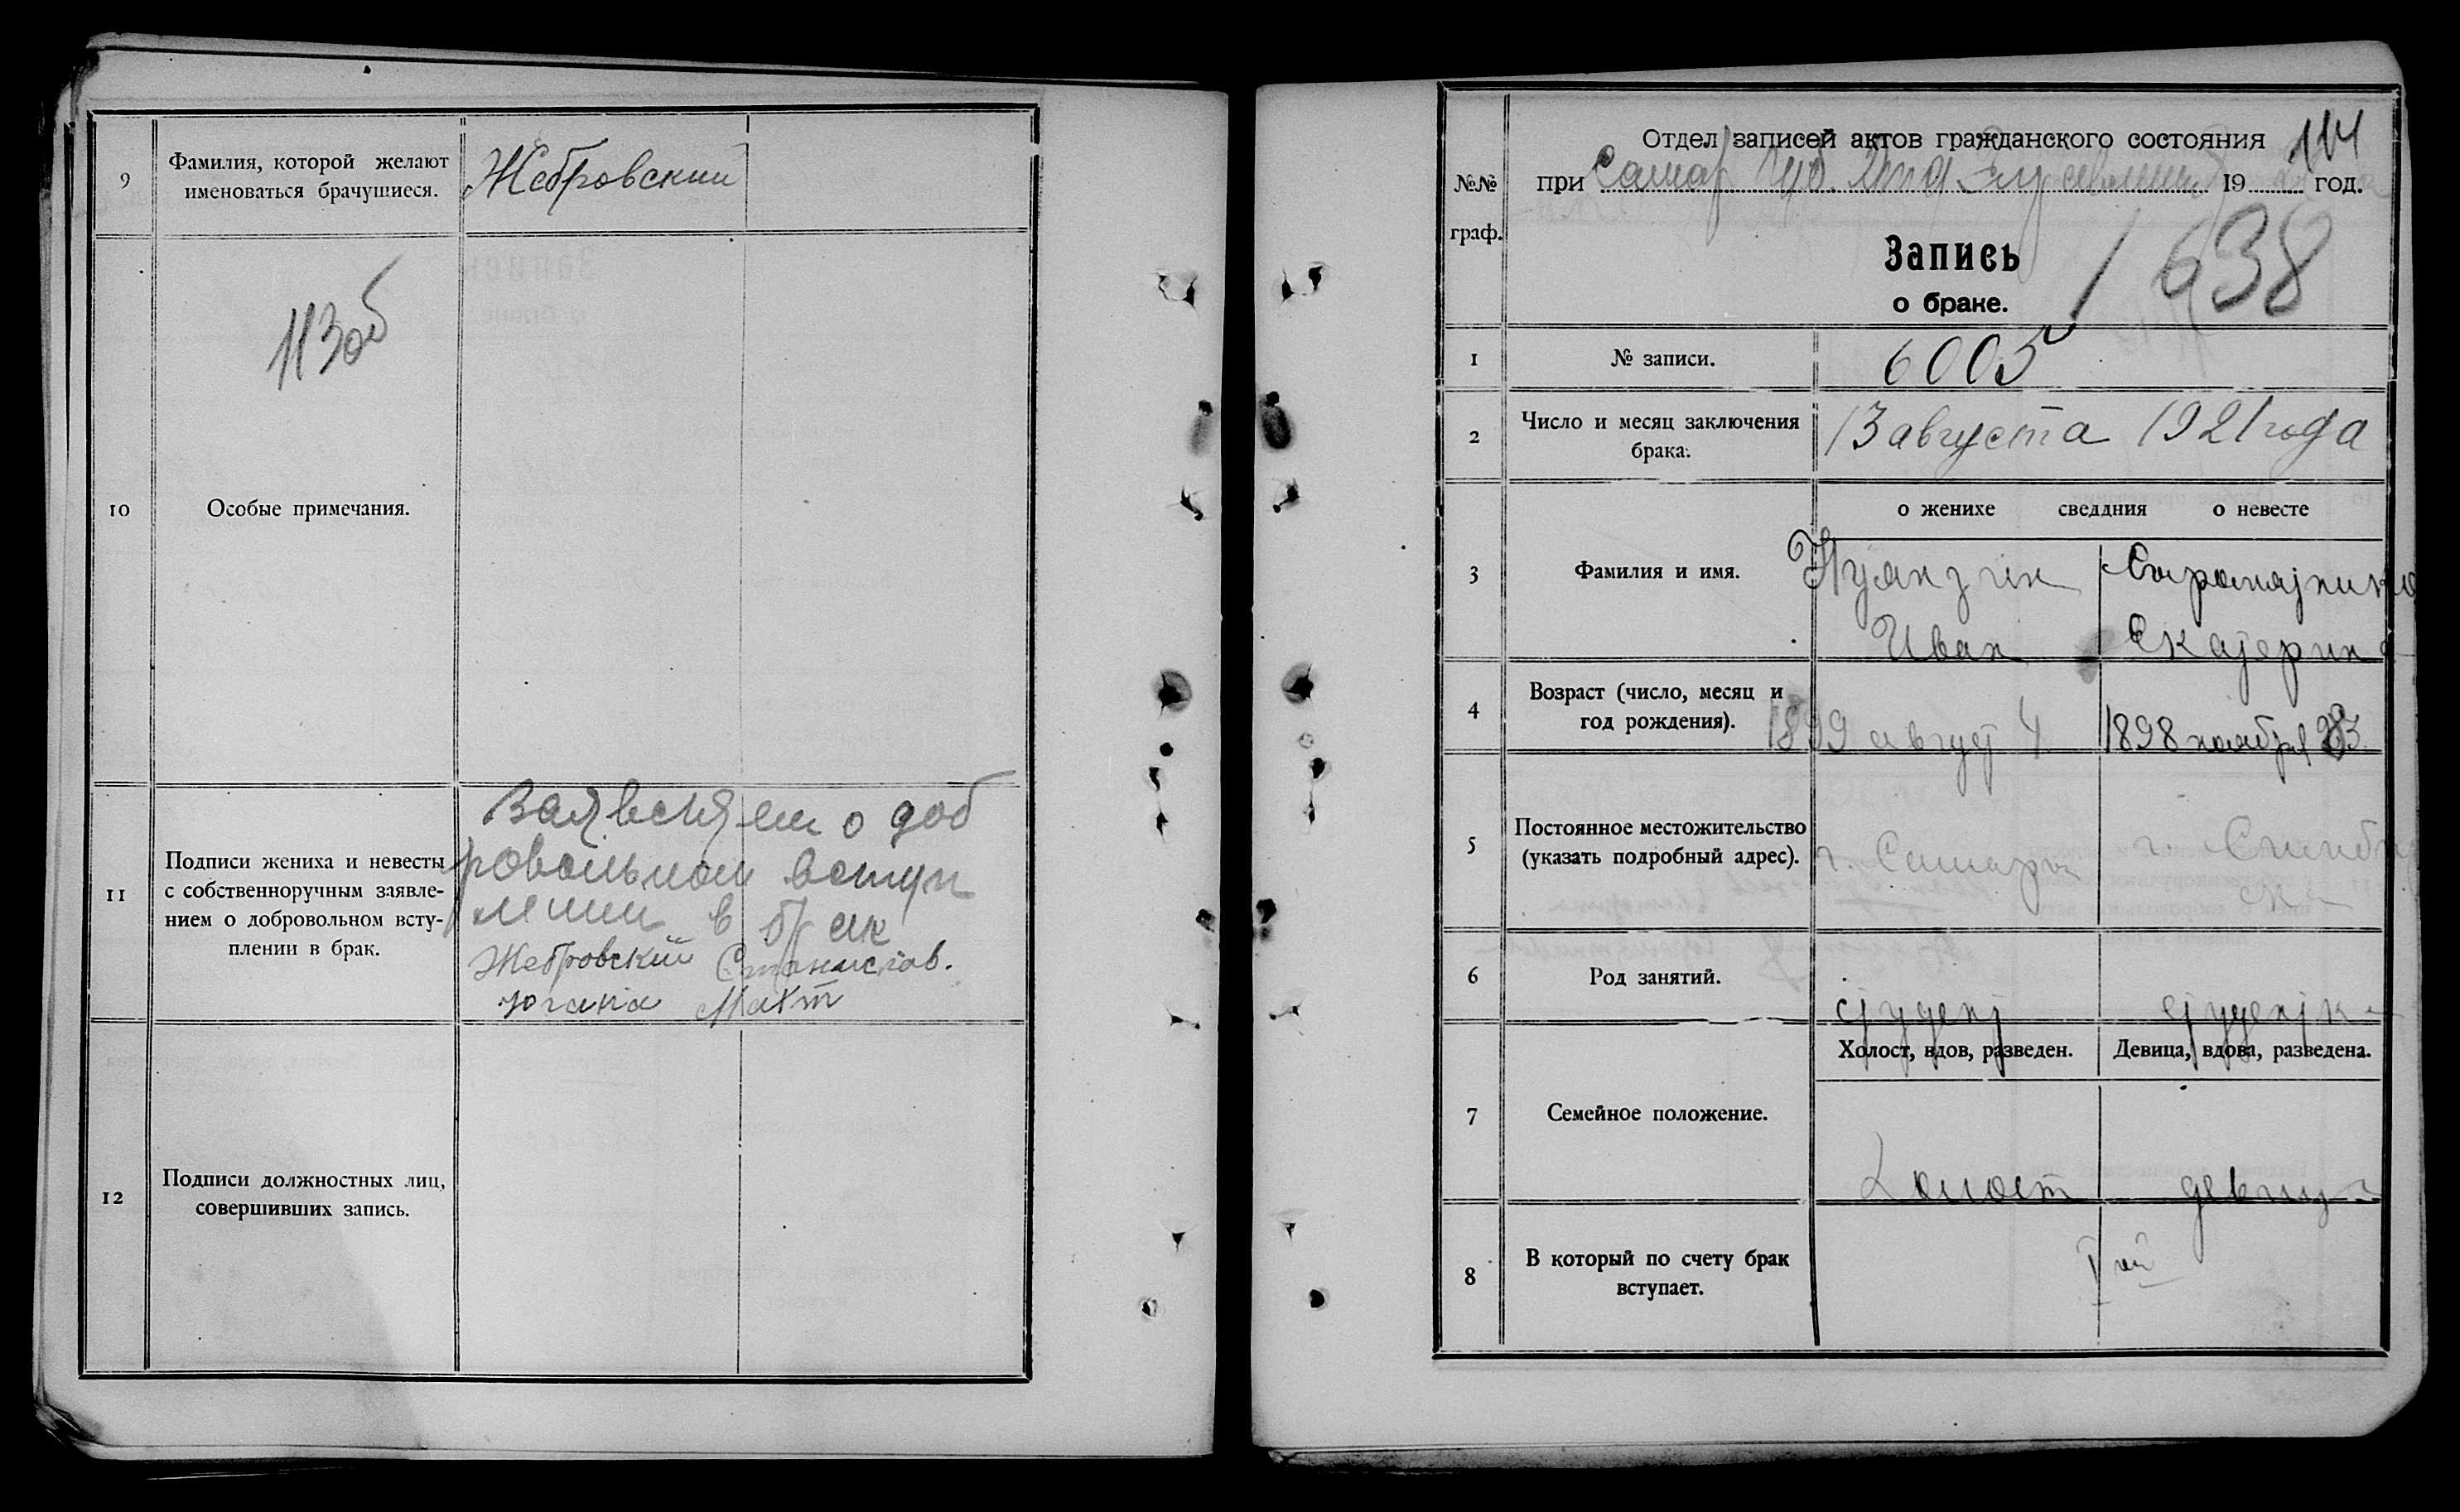 9
Фамилия, которой желают
именоваться брачущиеся.
Жебровский
113об
10
Особые примечания.
11
Подписи жениха и невесты
с собственноручным заявле-
нием о добровольном всту-
плении в брак.
Заявляем о доб
ровольном вступ
лении в брак
Жебровский Станислав.
12
Подписи должностных лиц,
совершивших запись.
114
№№
граф.
Отдел записей актов гражданского состояния
при Самар Губ. Отд 19 год.
Запись
о браке.
1638
1
№ записи.
6005
2
Число и месяц заключения
брака.
13 августа 1921 года
о женихе сведдния о невесте
3
Фамилия и имя.
Иван Екатерина
4
Возраст (число, месяц и
год рождения).
1899 август 4 1898 ноября
5
Постоянное местожительство
(указать подробный адрес).
г. Самара г. Симбир
ск
6
Род занятий.
студент студентка
Холост, вдов, разведен. Девица, вдова, разведена.
7
Семейное положение.
Холост девица
8
В который по счету брак
вступает.
I ый